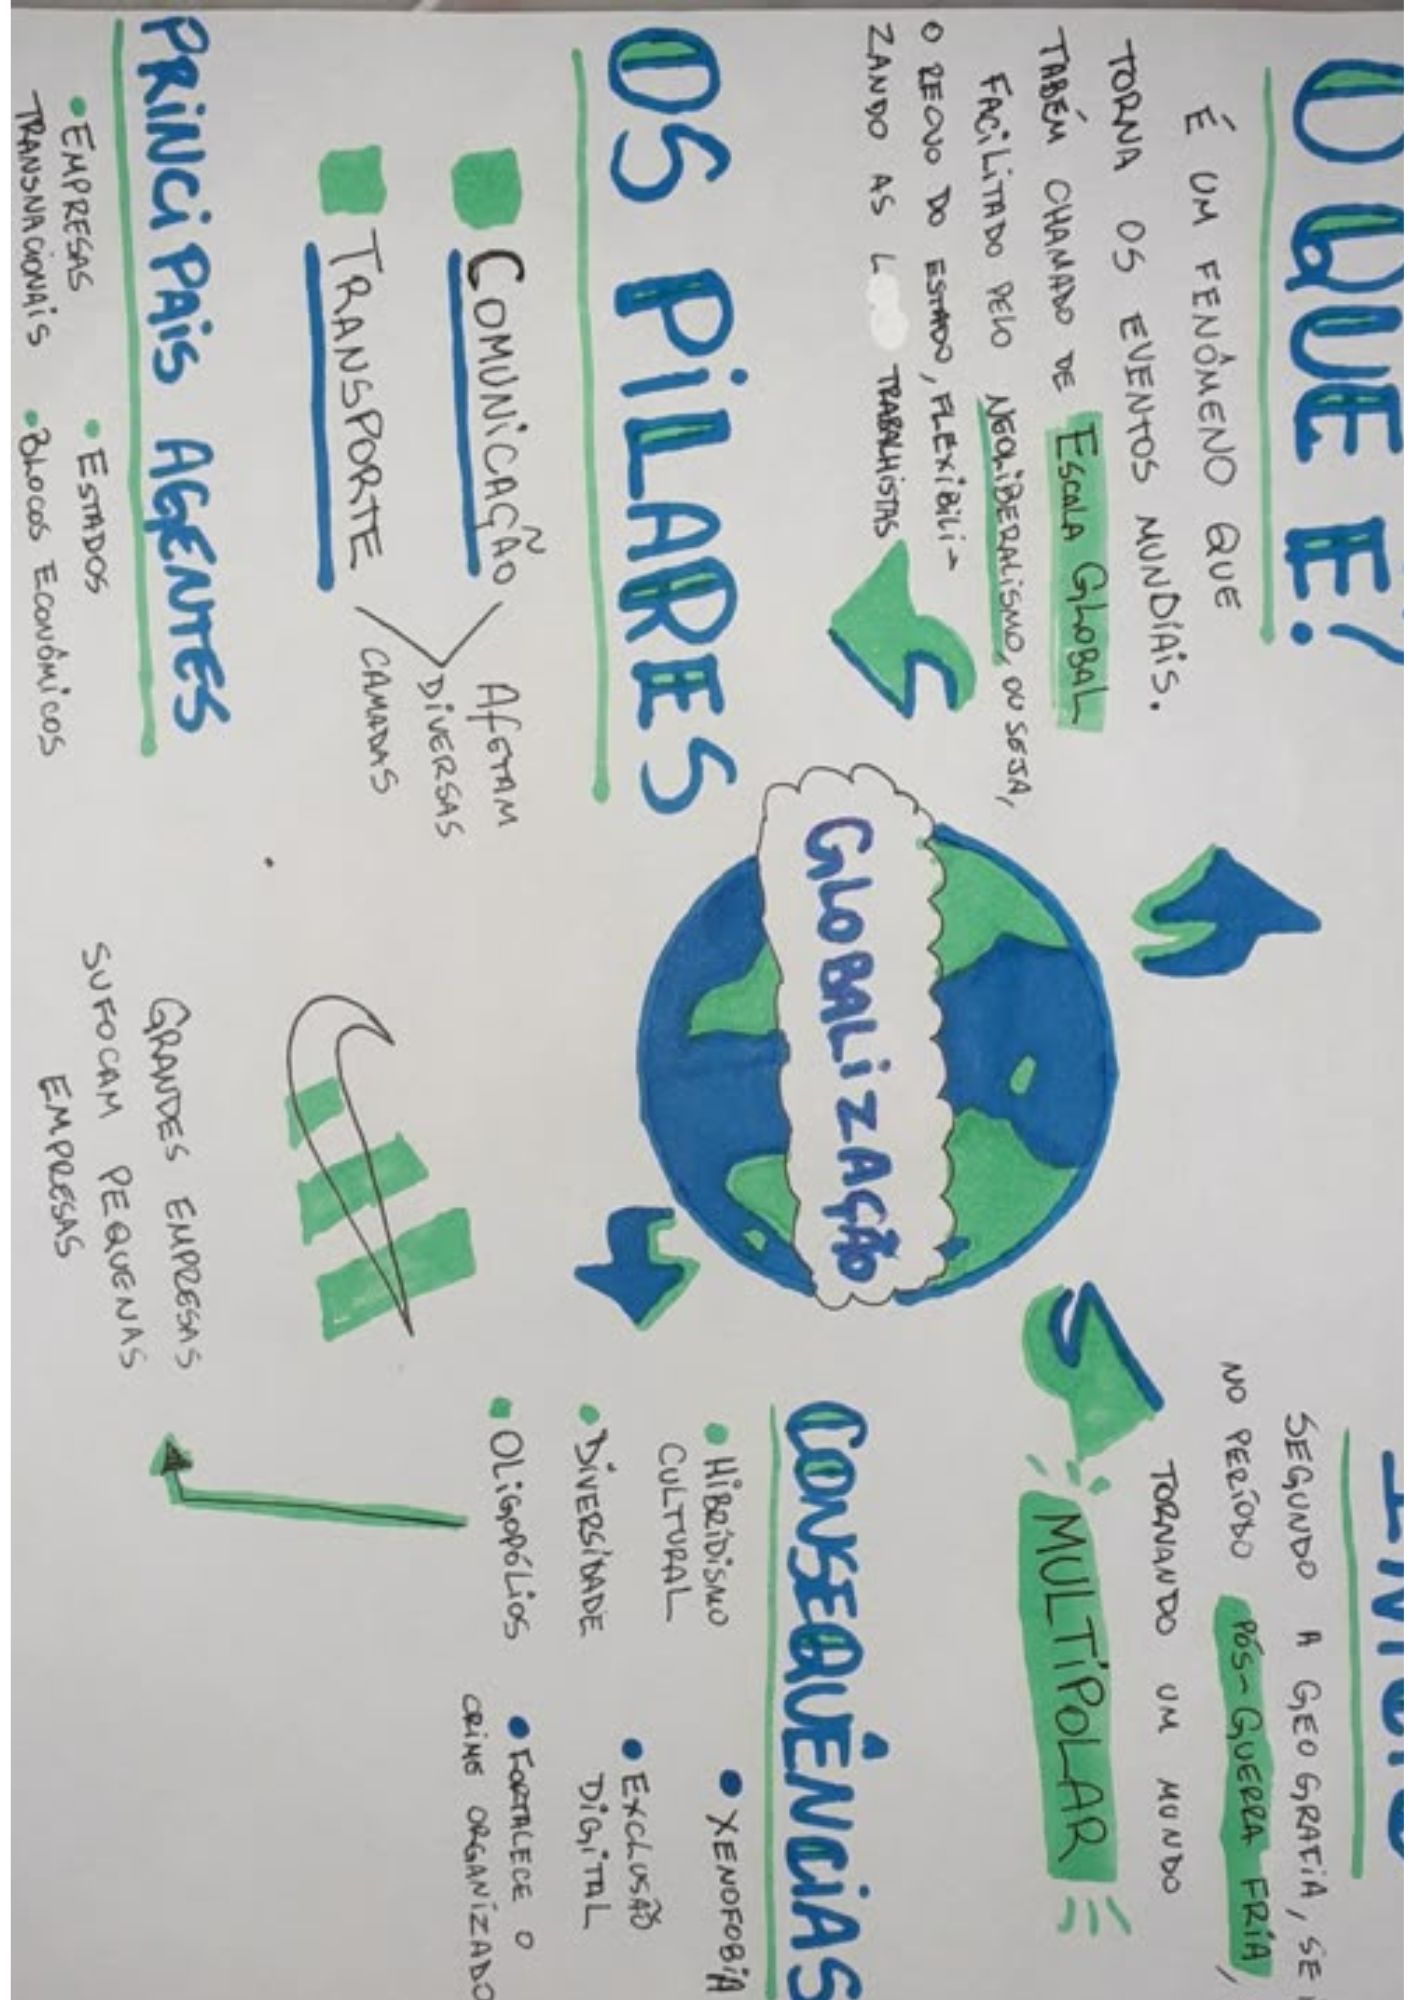 O QUE É?
É UM FENÔMENO QUE
TORNA OS EVENTOS MUNDIAIS.
TABÉM CHAMADO DE ESCALA GLOBAL
FACILITADO PELO NEOLIBERALISMO, OU SEJA,
O RECUO DO ESTADO, FLEXIBILI-
ZANDO AS TRABALHISTAS
OS PILARES
COMUNICAÇÃO
TRANSPORTE
AFETAM
DIVERSAS
CAMADAS
PRINCIPAIS AGENTES
• EMPRESAS
TRANSNACIONAIS
• ESTADOS
• BLOCOS ECONÔMICOS
GLOBALIZAÇÃO
SEGUNDO A GEOGRAFIA, SE
NO PERÍODO PÓS-GUERRA FRIA,
TORNANDO UM MUNDO
MULTIPOLAR
CONSEQUÊNCIAS
• HIBRIDISMO
CULTURAL
• DIVERSIDADE
• OLIGOPÓLIOS
• XENOFOBIA
• EXCLUSÃO
DIGITAL
• FORTALECE O
CRIME ORGANIZADO
GRANDES EMPRESAS
SUFOCAM PEQUENAS
EMPRESAS